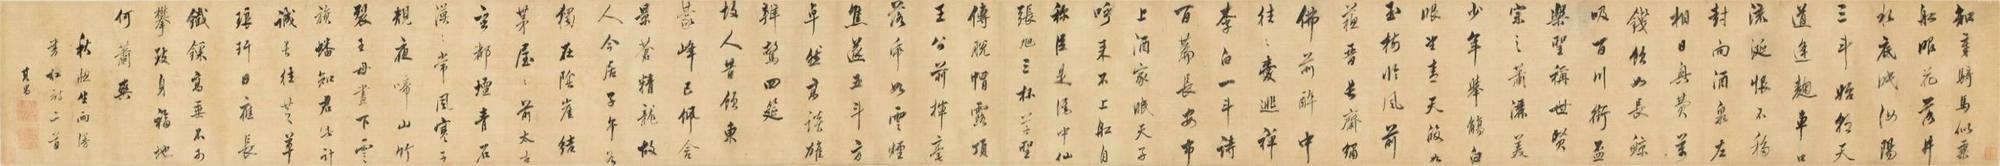 知章騎馬似乘
船眼花落井
水底眠汝陽
三斗始朝天
道逢麴車口
流涎恨不移
封向酒泉左
相日興費萬
錢飲如長鯨
吸百川銜盃
樂聖稱世賢
宗之蕭灑美
少年舉觴白
眼望青天皎如
玉樹臨風前
蘇晉長齋繡
佛前醉中
往往愛逃禪
李白一斗詩
百篇長安市
上酒家眠天子
呼來不上船自
稱臣是酒中仙
張旭三杯草聖
傳脫帽露頂
王公前揮毫
落紙如雲煙
焦遂五斗方
卓然高談雄
辯驚四筵
故人昔隱東
蒙峰已佩含
景蒼精龍故
人今居子午谷
獨在陰崖結
茅屋屋前太古
玄都壇青石
漠漠常風寒子
規夜啼山竹
裂王母晝下雲
旗翻知君此計
誠長往芝草
琅玕日應長
鐵鎖高垂不可
攀致身福地
何蕭爽
秋
書杜詩二首
其昌